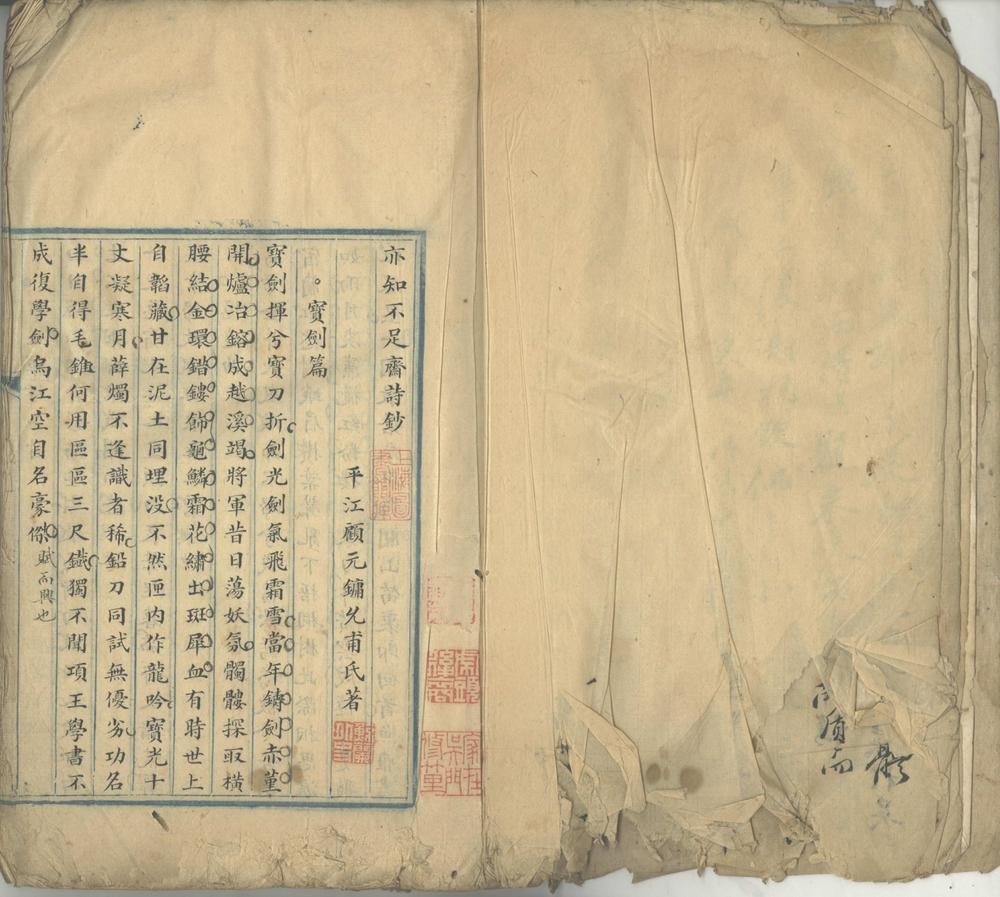 亦知不足齋詩鈔
平江顧元鏞允甫氏著
寶劍篇
寶劍揮兮寶刀折劍光劍氣飛霜雪當年鑄劍赤菫
開爐冶鎔成越溪竭將軍昔日蕩妖氛髑髏探取橫
腰結金環錯鏤飾龜鱗霜花繡出斑犀血有時世上
自韜藏甘在泥土同埋没不然匣内作龍吟寶光十
丈凝寒月薛燭不逢識者稀鉛刀同試無優劣功名
半自得毛錐何用區區三尺鐵獨不聞項王學書不
成復學劍烏江空自名豪傑賦而興也